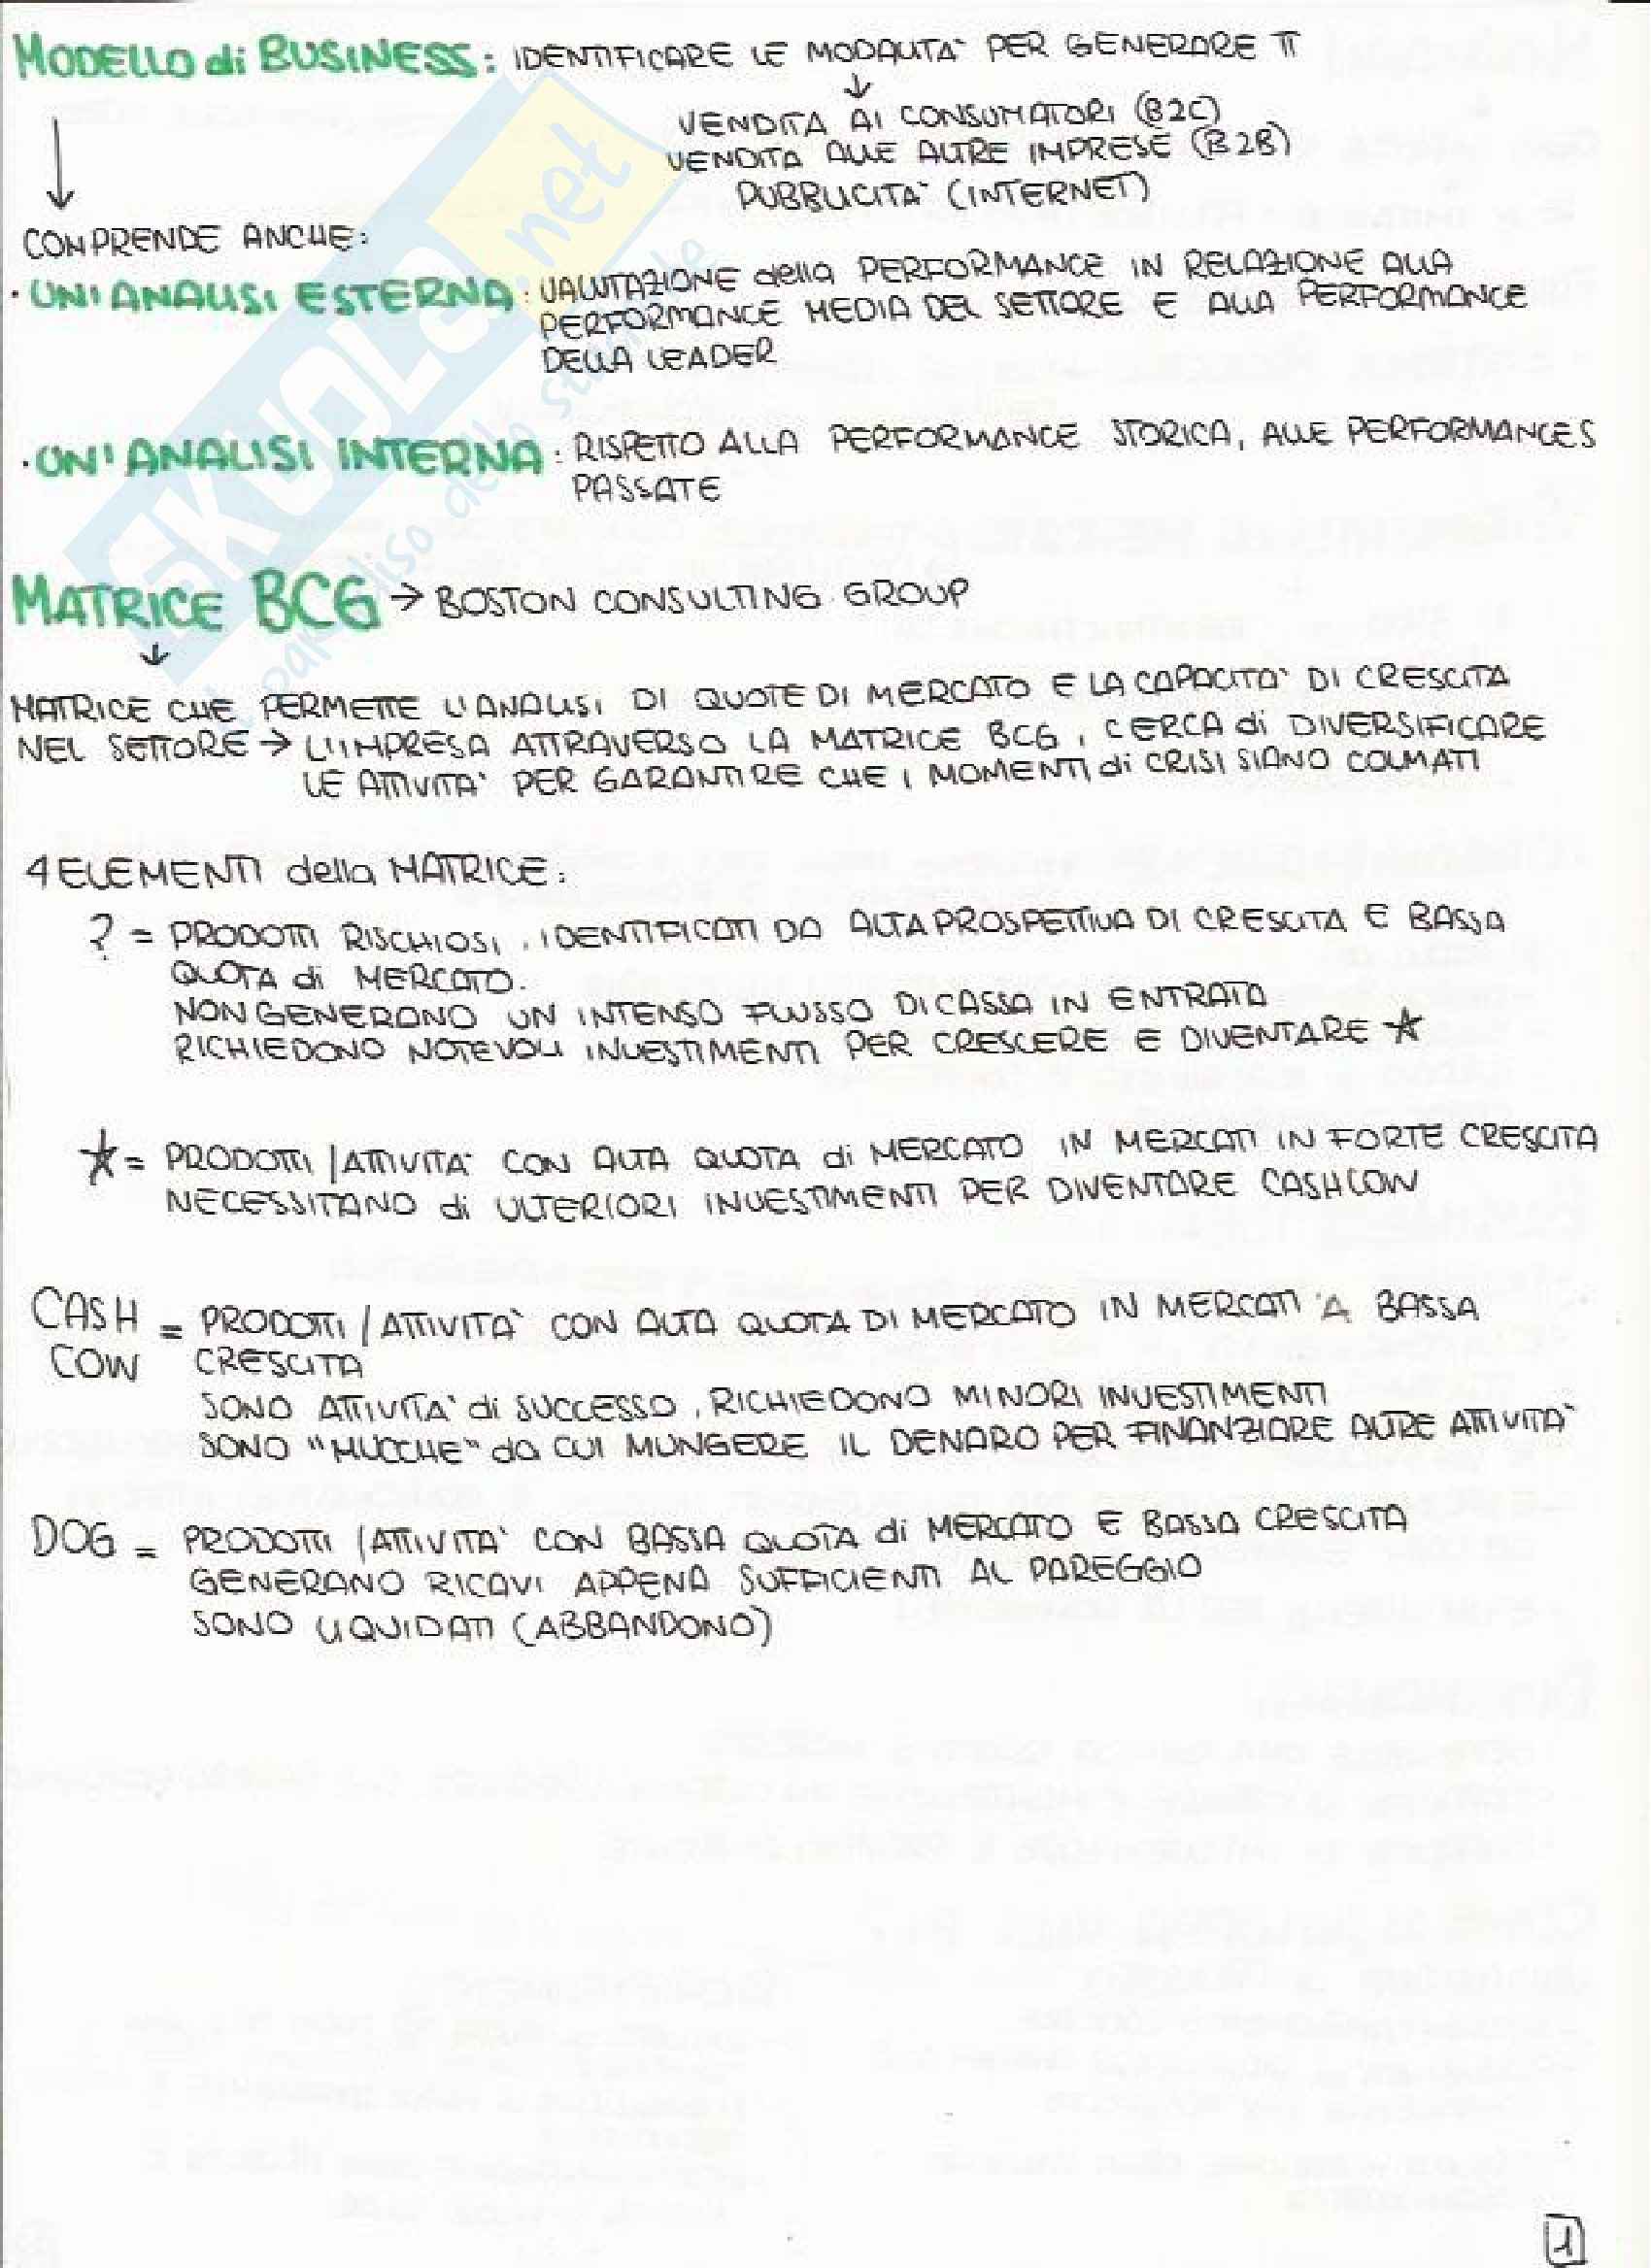 MODELLO di BUSINESS: IDENTIFICARE LE MODALITA' PER GENERARE π
↓
VENDITA AI CONSUMATORI (B2C)
VENDITA ALLE ALTRE IMPRESE (B2B)
PUBBLICITA' (INTERNET)
COMPRENDE ANCHE:
· UN'ANALISI ESTERNA: VALUTAZIONE della PERFORMANCE IN RELAZIONE ALLA
PERFORMANCE MEDIA DEL SETTORE E ALLA PERFORMANCE
DELLA LEADER
· UN'ANALISI INTERNA: RISPETTO ALLA PERFORMANCE STORICA, ALLE PERFORMANCES
PASSATE
SKUOLA.net
il paradiso dello studente
MATRICE BCG → BOSTON CONSULTING GROUP
↓
MATRICE CHE PERMETTE L'ANALISI DI QUOTE DI MERCATO E LA CAPACITA' DI CRESCITA
NEL SETTORE → L'IMPRESA ATTRAVERSO LA MATRICE BCG, CERCA di DIVERSIFICARE
LE ATTIVITA' PER GARANTIRE CHE I MOMENTI di CRISI SIANO COLMATI
4 ELEMENTI della MATRICE:
? = PRODOTTI RISCHIOSI, IDENTIFICATI DA ALTA PROSPETTIVA DI CRESCITA E BASSA
QUOTA di MERCATO.
NON GENERANO UN INTENSO FLUSSO DI CASSA IN ENTRATA
RICHIEDONO NOTEVOLI INVESTIMENTI PER CRESCERE E DIVENTARE ★
★ = PRODOTTI/ATTIVITA' CON ALTA QUOTA di MERCATO IN MERCATI IN FORTE CRESCITA
NECESSITANO di ULTERIORI INVESTIMENTI PER DIVENTARE CASHCOW
CASH COW = PRODOTTI/ATTIVITA' CON ALTA QUOTA DI MERCATO IN MERCATI A BASSA
CRESCITA
SONO ATTIVITA' di SUCCESSO, RICHIEDONO MINORI INVESTIMENTI
SONO "MUCCHE" da CUI MUNGERE IL DENARO PER FINANZIARE ALTRE ATTIVITA'
DOG = PRODOTTI/ATTIVITA' CON BASSA QUOTA di MERCATO E BASSA CRESCITA
GENERANO RICAVI APPENA SUFFICIENTI AL PAREGGIO
SONO LIQUIDATI (ABBANDONO)
1